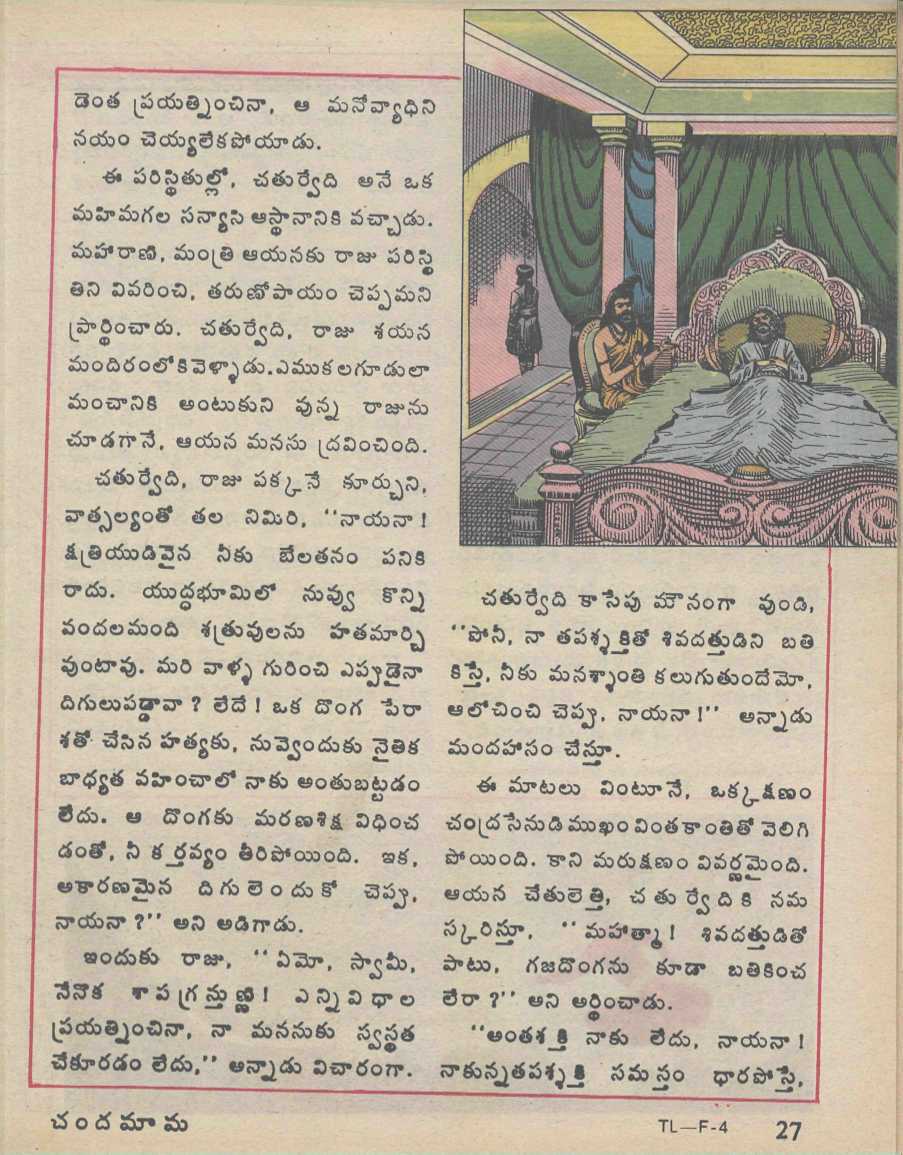 డెంత ప్రయత్నించినా, ఆ మనోవ్యాధిని
నయం చెయ్యలేకపోయాడు.
ఈ పరిస్థితుల్లో, చతుర్వేది అనే ఒక
మహిమగల సన్యాసి ఆస్థానానికి వచ్చాడు.
మహారాణి, మంత్రి ఆయనకు రాజు పరిస్థి
తిని వివరించి, తరుణోపాయం చెప్పమని
ప్రార్థించారు. చతుర్వేది, రాజు శయన
మందిరంలోకివెళ్ళాడు.ఎముకలగూడులా
మంచానికి అంటుకుని వున్న రాజును
చూడగానే, ఆయన మనసు ద్రవించింది.
చతుర్వేది, రాజు పక్కనే కూర్చుని,
వాత్సల్యంతో తల నిమిరి, ‘‘నాయనా!
క్షత్రియుడివైన నీకు బేలతనం పనికి
రాదు. యుద్ధభూమిలో నువ్వు కొన్ని
వందలమంది శత్రువులను హతమార్చి
వుంటావు. మరి వాళ్ళ గురించి ఎప్పుడైనా
దిగులుపడ్డావా? లేదే! ఒక దొంగ పేరా
శతో చేసిన హత్యకు, నువ్వెందుకు నైతిక
బాధ్యత వహించాలో నాకు అంతుబట్టడం
లేదు. ఆ దొంగకు మరణశిక్ష విధించ
డంతో, నీ కర్తవ్యం తీరిపోయింది. ఇక,
అకారణమైన దిగులెందుకో చెప్పు,
నాయనా?’’ అని అడిగాడు.
ఇందుకు రాజు, ‘‘ఏమో, స్వామీ,
నేనొక శాపగ్రస్తుణ్ణి! ఎన్నివిధాల
ప్రయత్నించినా, నా మనసుకు స్వస్థత
చేకూరడం లేదు,’’ అన్నాడు విచారంగా.
చతుర్వేది కాసేపు మౌనంగా వుండి,
‘‘పోనీ, నా తపశ్శక్తితో శివదత్తుడిని బతి
కిస్తే, నీకు మనశ్శాంతి కలుగుతుందేమో,
ఆలోచించి చెప్పు, నాయనా!’’ అన్నాడు
మందహాసం చేస్తూ.
ఈ మాటలు వింటూనే, ఒక్కక్షణం
చంద్రసేనుడి ముఖం వింతకాంతితో వెలిగి
పోయింది. కాని మరుక్షణం వివర్ణమైంది.
ఆయన చేతులెత్తి, చతుర్వేదికి నమ
స్కరిస్తూ, ‘‘మహాత్మా! శివదత్తుడితో
పాటు, గజదొంగను కూడా బతికించ
లేరా?’’ అని అర్థించాడు.
‘‘అంతశక్తి నాకు లేదు, నాయనా!
నాకున్నతపశ్శక్తి సమస్తం ధారపోస్తే,
చందమామ
TL—F-4 27